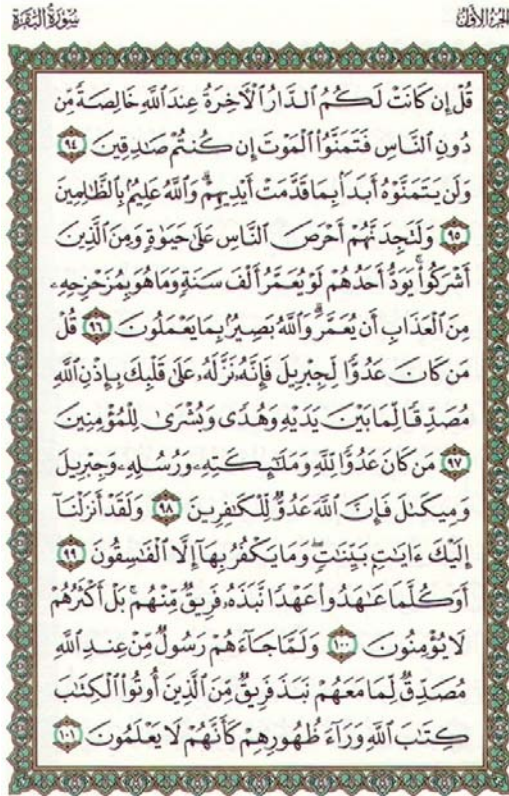 الجزء الأول
سورة البقرة
قُلْ إِن كَانَتْ لَكُمُ الدَّارُ الْأَخِرَةُ عِندَ اللَّهِ خَالِصَةً مِّن
دُونِ النَّاسِ فَتَمَنَّوُا الْمَوْتَ إِن كُنتُمْ صَادِقِينَ ٩٤
وَلَن يَتَمَنَّوْهُ أَبَدًا بِمَا قَدَّمَتْ أَيْدِيهِمْ ۗ وَاللَّهُ عَلِيمٌ بِالظَّالِمِينَ
٩٥ وَلَتَجِدَنَّهُمْ أَحْرَصَ النَّاسِ عَلَىٰ حَيَوٰةٍ وَمِنَ الَّذِينَ
أَشْرَكُوا ۚ يَوَدُّ أَحَدُهُمْ لَوْ يُعَمَّرُ أَلْفَ سَنَةٍ وَمَا هُوَ بِمُزَحْزِحِهِ
مِنَ الْعَذَابِ أَن يُعَمَّرَ ۗ وَاللَّهُ بَصِيرٌ بِمَا يَعْمَلُونَ ٩٦ قُلْ
مَن كَانَ عَدُوًّا لِّجِبْرِيلَ فَإِنَّهُ نَزَّلَهُ عَلَىٰ قَلْبِكَ بِإِذْنِ اللَّهِ
مُصَدِّقًا لِّمَا بَيْنَ يَدَيْهِ وَهُدًى وَبُشْرَىٰ لِلْمُؤْمِنِينَ
٩٧ مَن كَانَ عَدُوًّا لِّلَّهِ وَمَلَٰئِكَتِهِ وَرُسُلِهِ وَجِبْرِيلَ
وَمِيكَىٰلَ فَإِنَّ اللَّهَ عَدُوٌّ لِّلْكَٰفِرِينَ ٩٨ وَلَقَدْ أَنزَلْنَا
إِلَيْكَ ءَايَٰتٍ بَيِّنَٰتٍ ۖ وَمَا يَكْفُرُ بِهَا إِلَّا الْفَٰسِقُونَ ٩٩
أَوَكُلَّمَا عَٰهَدُوا عَهْدًا نَّبَذَهُ فَرِيقٌ مِّنْهُم ۚ بَلْ أَكْثَرُهُمْ
لَا يُؤْمِنُونَ ١٠٠ وَلَمَّا جَاءَهُمْ رَسُولٌ مِّنْ عِندِ اللَّهِ
مُصَدِّقٌ لِّمَا مَعَهُمْ نَبَذَ فَرِيقٌ مِّنَ الَّذِينَ أُوتُوا الْكِتَٰبَ
كِتَٰبَ اللَّهِ وَرَاءَ ظُهُورِهِمْ كَأَنَّهُمْ لَا يَعْلَمُونَ ١٠١